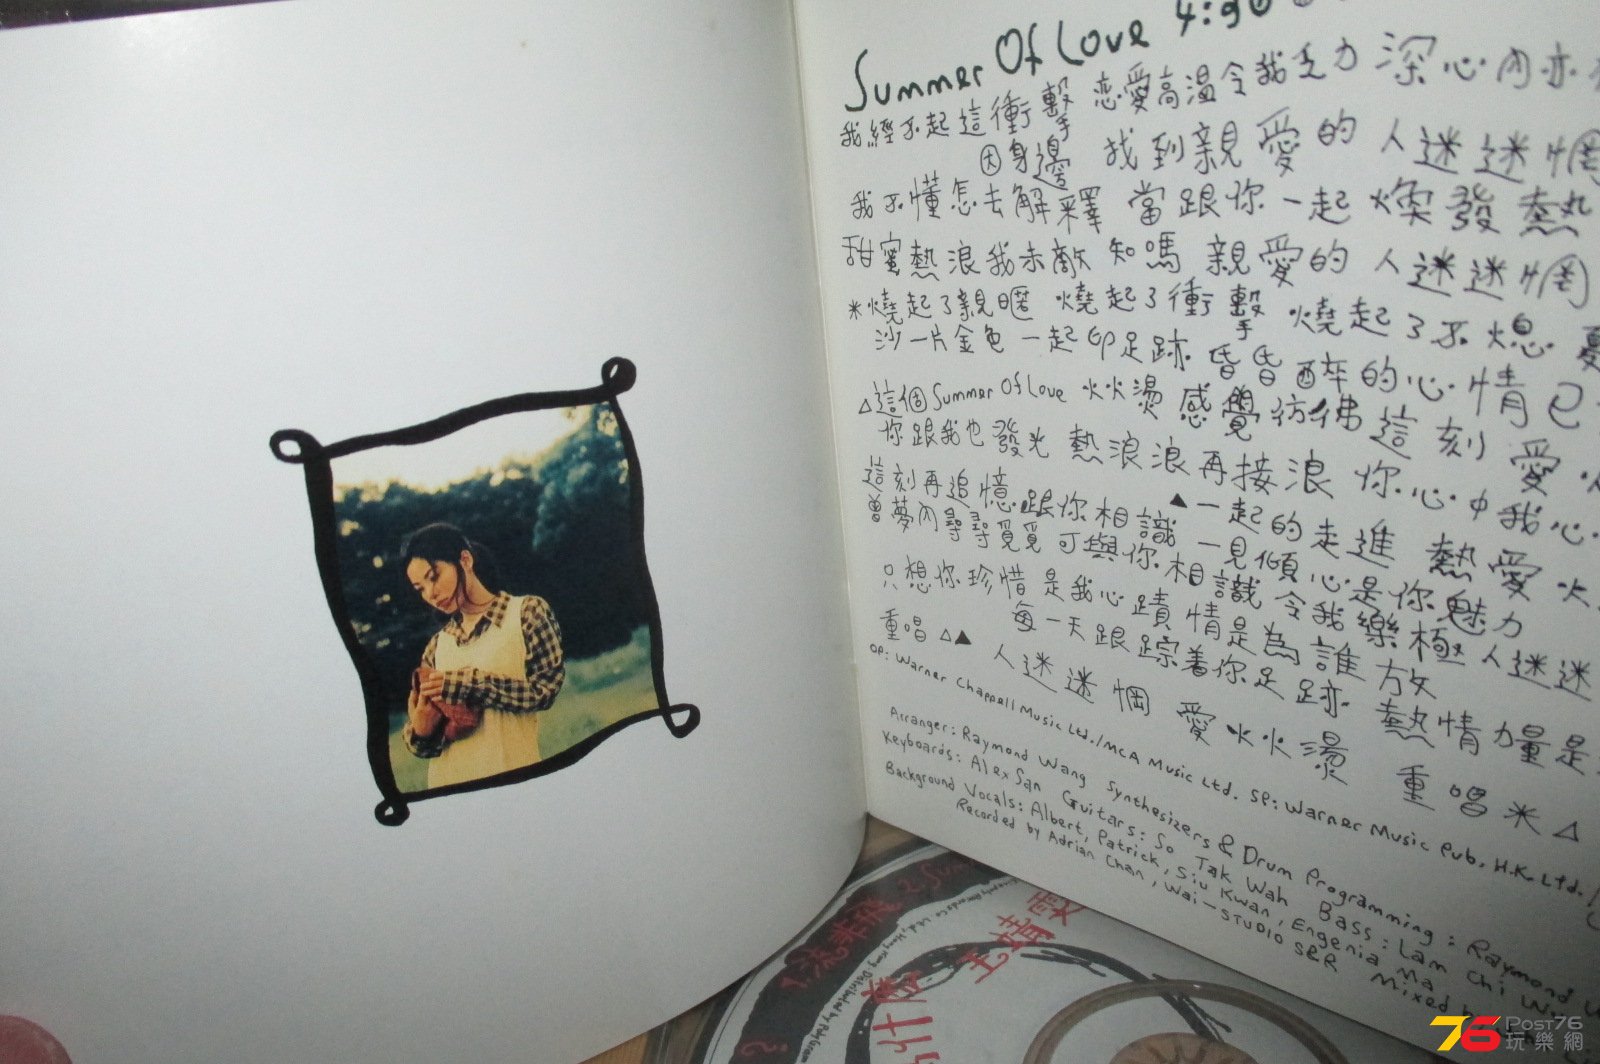 Summer Of Love 4:30
我經不起這衝擊 戀愛高溫令我乏力 深心內亦
因身邊 找到親愛的 人迷迷惘
我不懂怎去解釋 當跟你一起煥發熱
甜蜜熱浪我未敵 知嗎 親愛的 人迷迷惘
*燒起了親暱 燒起了衝擊 燒起了不熄 
沙一片金色 一起印足跡 昏昏醉的心情已
△這個Summer Of Love 火火燙 感覺彷彿這刻 愛火
你跟我也發光 熱浪浪再接浪 你心中我心
這刻再追憶 跟你相識 ▲一起的走進 熱愛火
曾夢內尋尋覓覓 可與你相識 一見傾心是你魅力
只想你珍惜 是我心蹟 情是為誰 令我樂極 人迷迷
每一天跟蹤着你足跡 放 熱情力量是
重唱△▲ 人迷迷惘 愛火火燙 重唱*△
OP: Warner Chappell Music Ltd./MCA Music Ltd. SP: Warner Music Pub. H.K. Ltd./
Arranger: Raymond Wang Synthesizers & Drum Programming: Raymond
Keyboards: Alex San Guitars: So Tak Wah Bass: Lam Chi
Background Vocals: Albert, Patrick, Siu Kwan, Engenia Ma
Recorded by Adrian Chan, Wai-STUDIO S&R Mixed by
1.流非飛 2.Sum
王靖雯
什麼
?
76 Post76
玩樂網